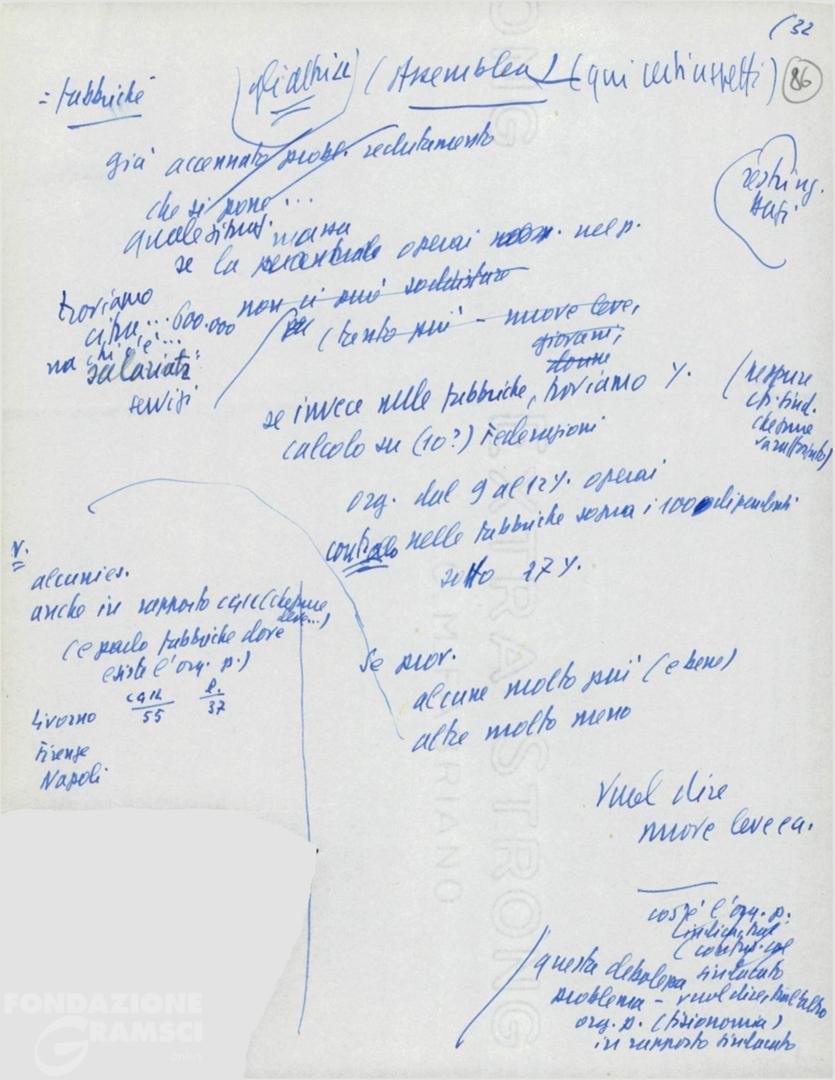 (32
86
= fabbriche (già altrice) (Assemblea) (qui certi aspetti)
già accennato probl. reclutamento
che si pone ...
quale situaz.
se la massa percentuale operai nel p.
(restring.
non ci può soddisfare
troviamo
cifre... 600.000
salariati
servizi
(tanto più - nuove leve,
giovani,
donne
se invece nelle fabbriche, troviamo %.
calcolo su (10?) Federazioni
(neppure
che pure
org. dal 9 al 12 %. operai
contro nelle fabbriche sopra i 1000 dipendenti
sotto 27 %.
v.
alcuni es.
anche in rapporto CGIL (che pure
deve...)
(e parlo fabbriche dove
esiste l'org. p.)
CGIL P.
Livorno 55 37
Firenze
Napoli
Se prov.
alcune molto più (e bene)
altre molto meno
Vuol dire
nuove leve ecc.
cos'è l'org. p.
sindacato
questa debolezza
problema - vuol dire, tral'altro
org. p. (fisionomia)
in rapporto sindacato
FONDAZIONE
GRAMSCI
online
EXTRA STRONG
FABRIANO